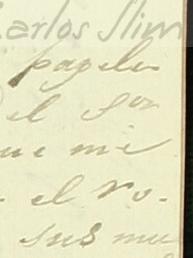 Carlos Slim
papeles
el Sor
que me
el ro-
sus mu